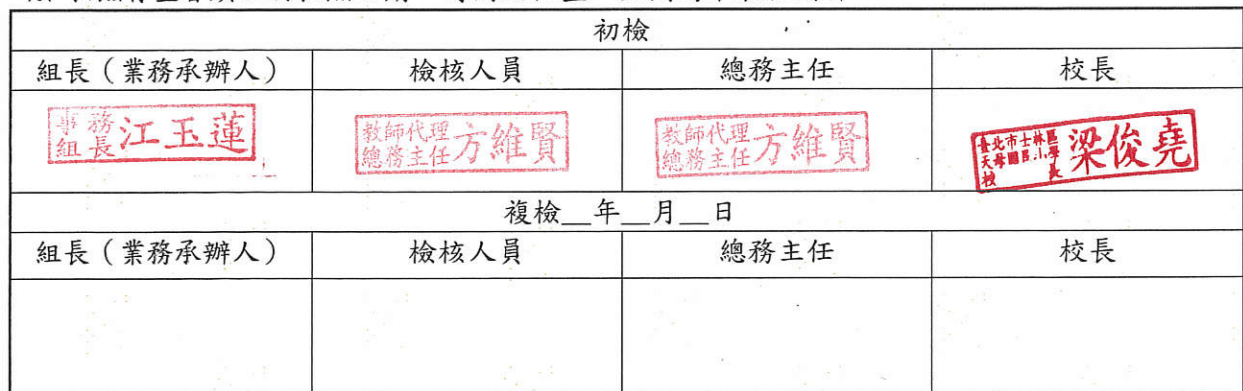 初檢
組長（業務承辦人） 檢核人員 總務主任 校長
事務組長 江玉蓮 教師代理總務主任 方維賢 教師代理總務主任 方維賢 臺北市士林區天母國民小學校長 梁俊堯
複檢__年__月__日
組長（業務承辦人） 檢核人員 總務主任 校長